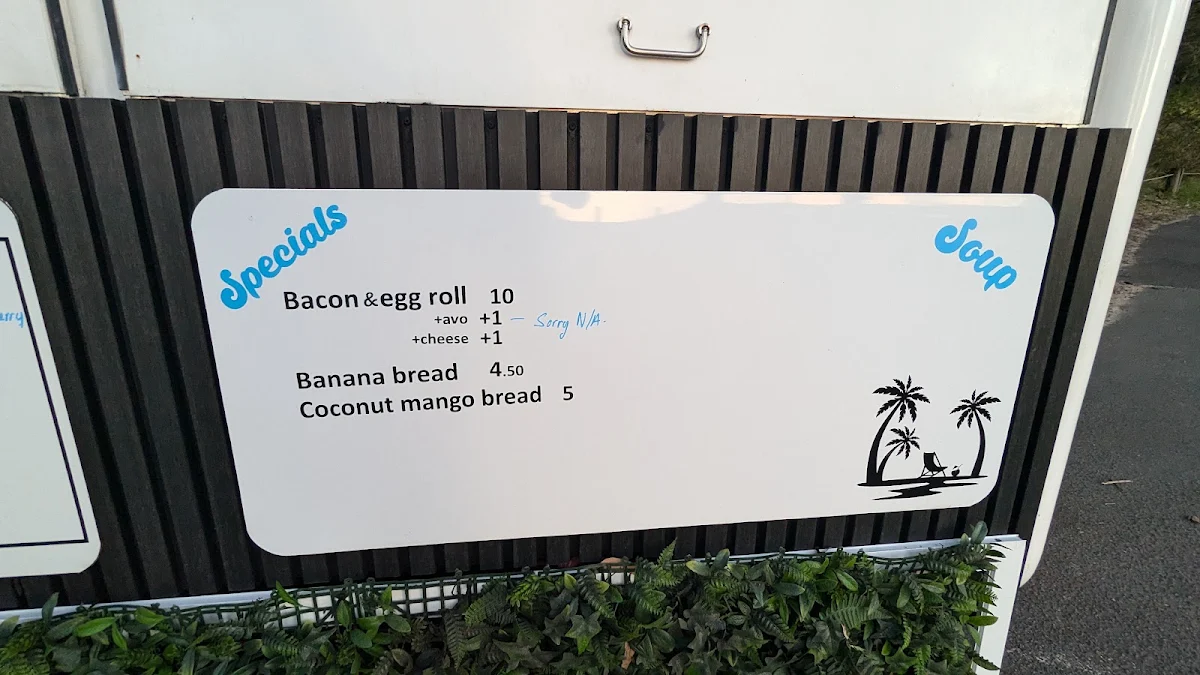 Specials
Soup
Bacon & egg roll 10
+avo +1 – Sorry N/A.
+cheese +1
Banana bread 4.50
Coconut mango bread 5